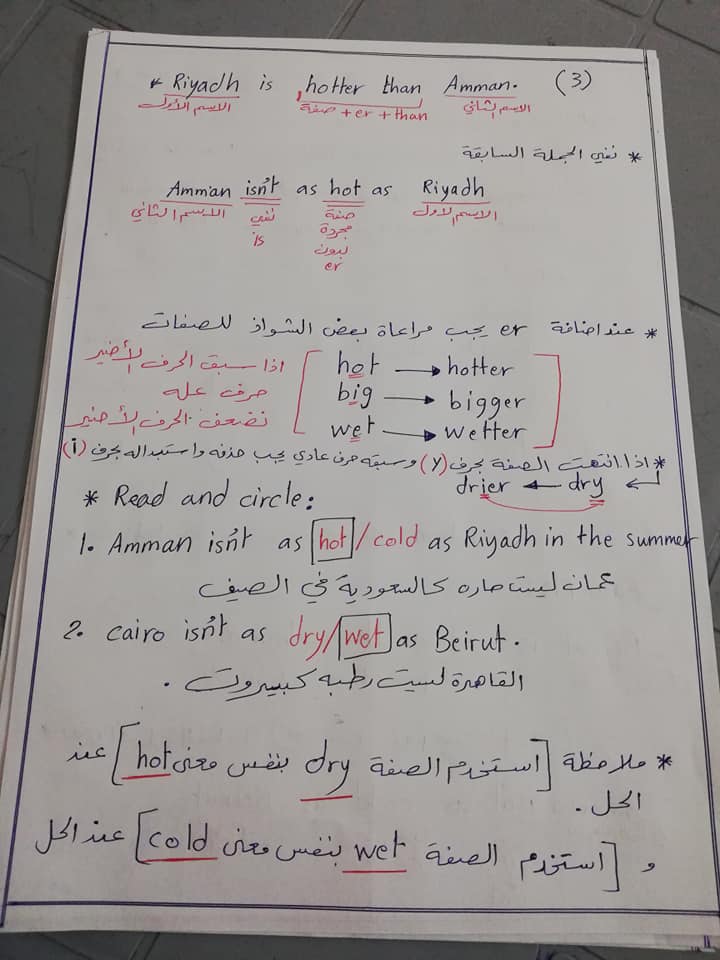 (3) * Riyadh is hotter than Amman.
الاسم الأول صفة + er + than الاسم الثاني
* نفي الجملة السابقة
Amman isn't as hot as Riyadh
الاسم الثاني نفي is صفة مجردة بدون er الاسم الاول
* عند اضافة er يجب مراعاة بعض الشواذ للصفات
اذا سبق الحرف الأخير hot → hotter
حرف عله big → bigger
نضعف الحرف الأخير wet → wetter
* اذا انتهت الصفة بحرف (y) وسبقه حرف عادي يجب حذفه واستبداله بحرف (i)
dry → drier
* Read and circle:
1. Amman isn't as hot/cold as Riyadh in the summer
عمان ليست حاره كالسعودية في الصيف
2. cairo isn't as dry/wet as Beirut.
القاهرة ليست رطبه كبيروت .
* ملاحظة [استخدم الصفة dry بنفس معنى hot] عند
الحل .
و [استخدم الصفة wet بنفس معنى cold] عند الحل